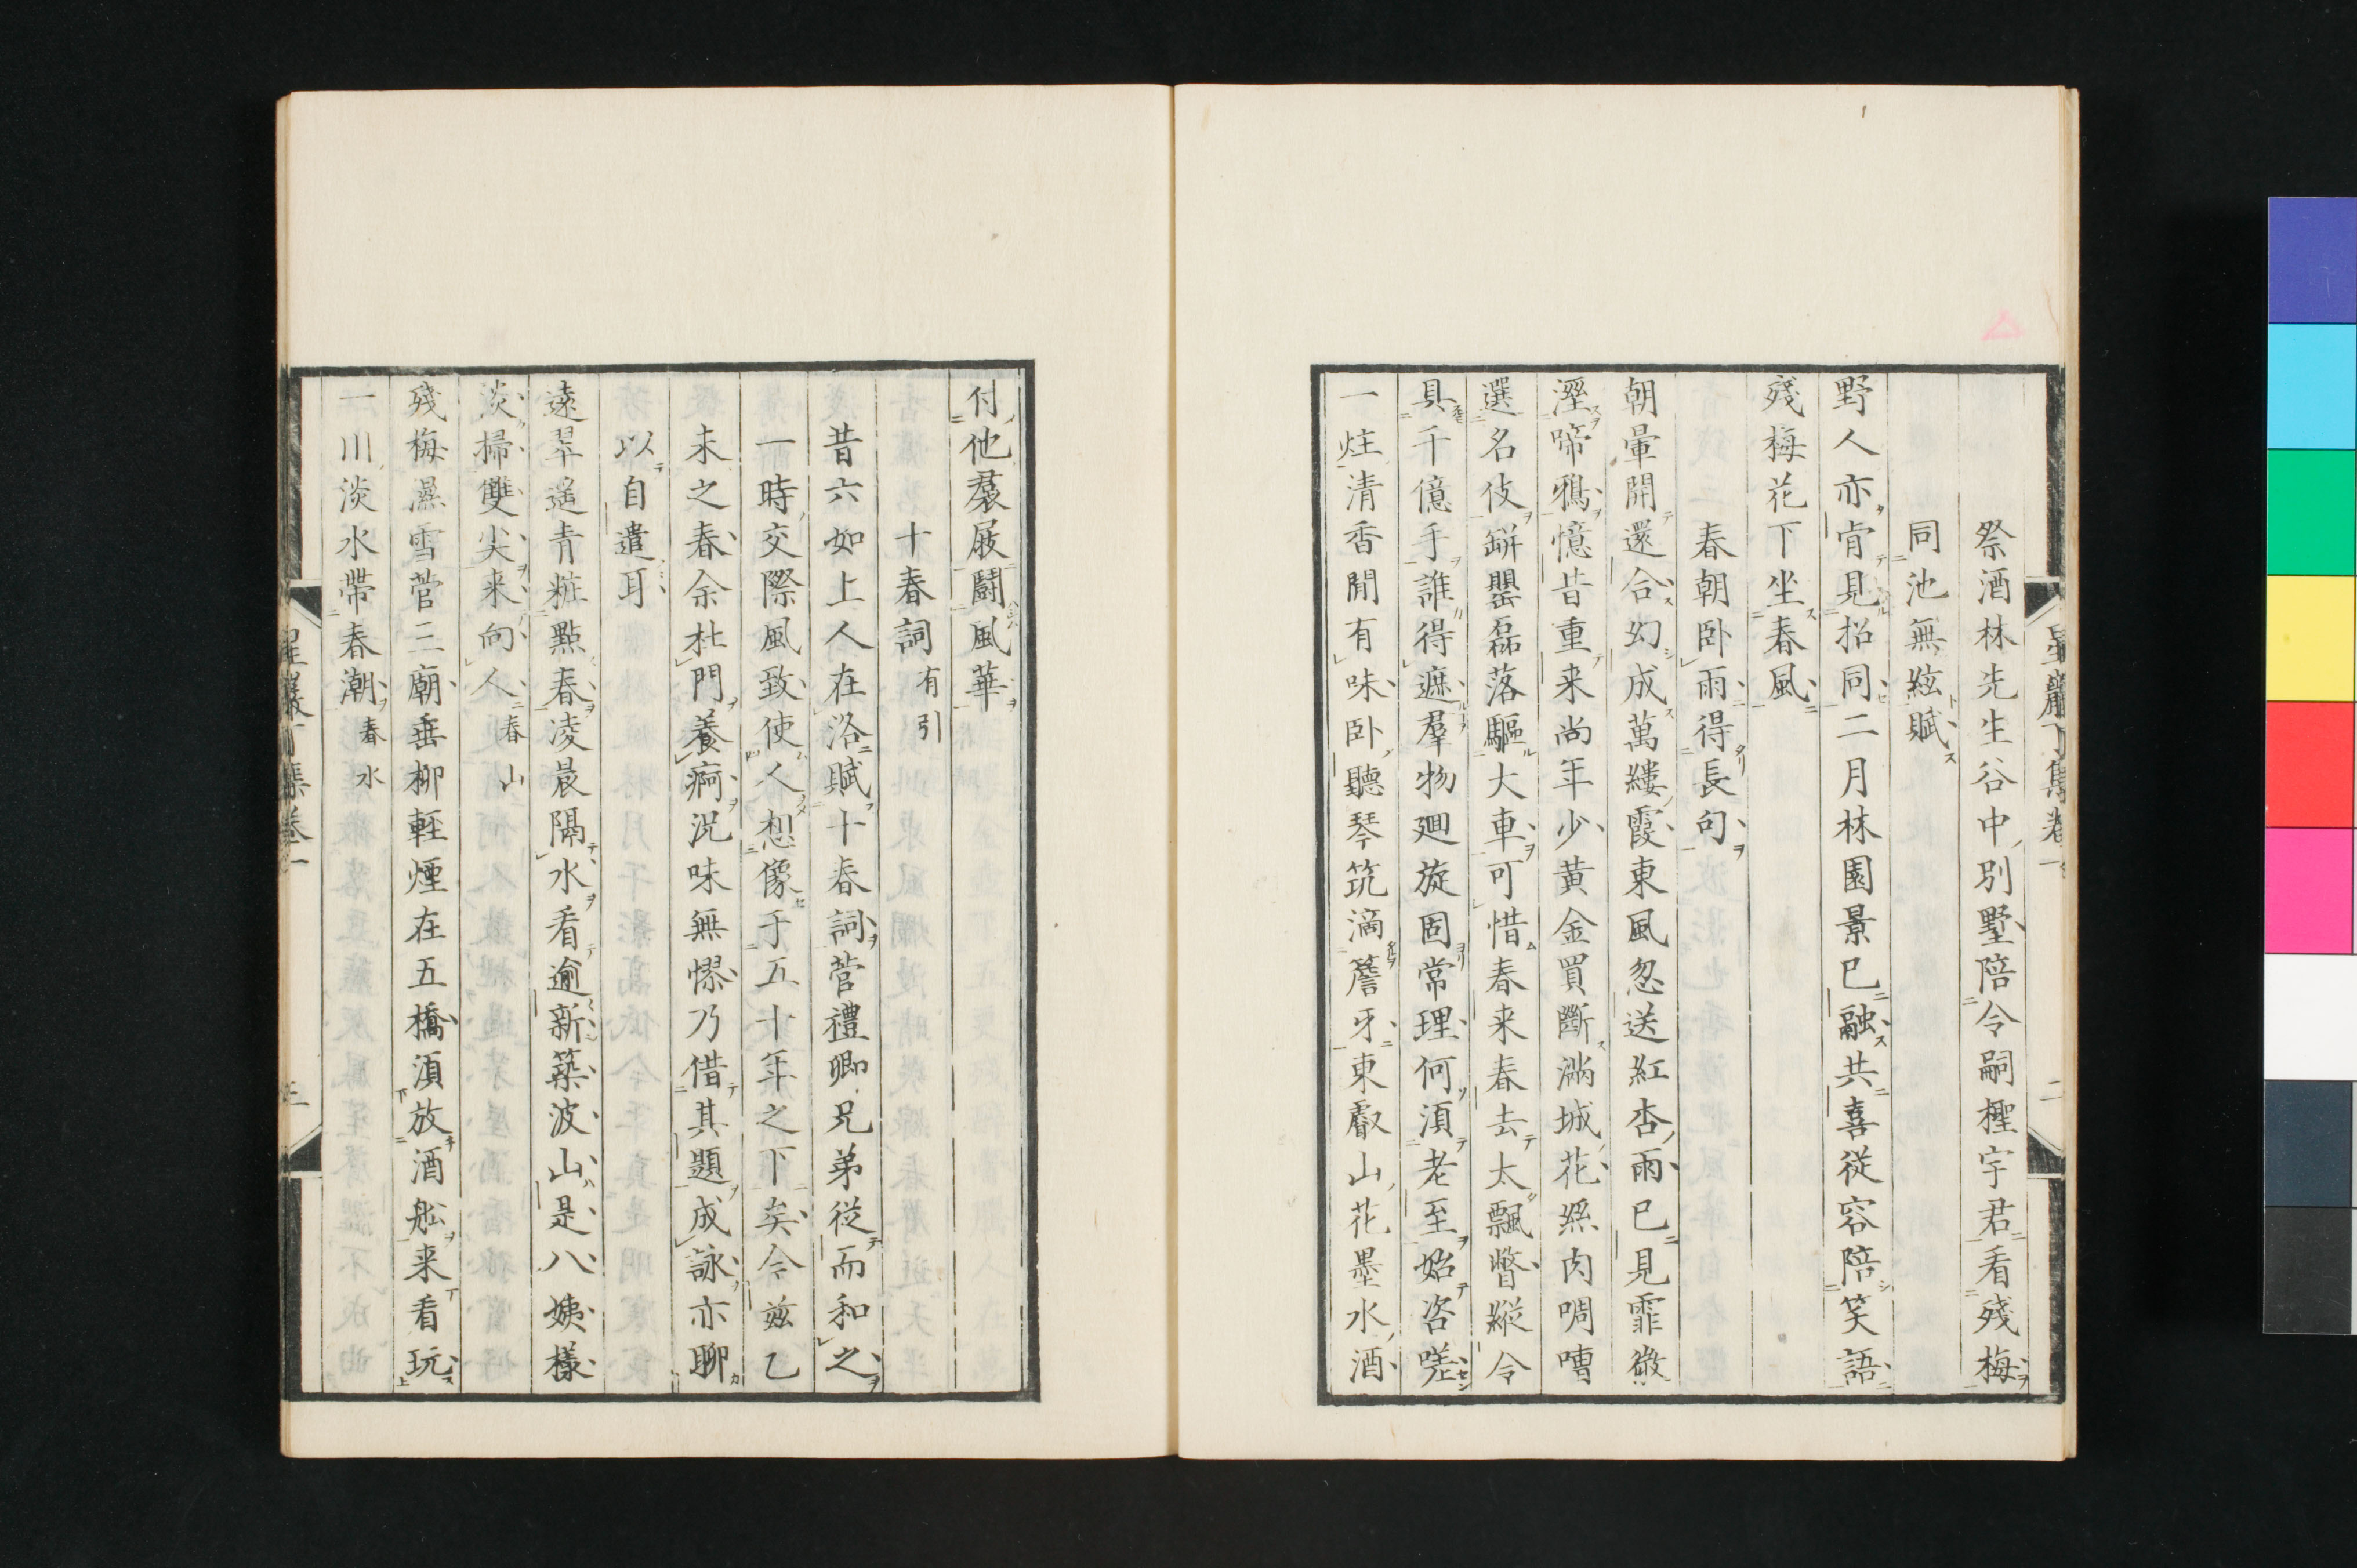 祭酒林先生谷中別墅陪令嗣檉宇君看殘梅
同池無絃賦
野人亦肯見招同二月林園景已融共喜従容陪笑語
殘梅花下坐春風
春朝卧雨得長句
朝暈開還合幻成萬縷霞東風忽送紅杏雨已見霏微
溼啼鴉憶昔重来尚年少黄金買斷滿城花絲肉啁嘈
選名伎缾罌磊落驅大車可惜春来春去太飄瞥縱令
具千億手誰得遮羣物廻旋固常理何湏老至始咨嗟
一炷清香聞有味卧聽琴筑滴簷牙東叡山花墨水酒
星巖丁集卷一
二
付他裙屐鬪風華
十春詞有引
昔六如上人在洛賦十春詞菅禮卿兄弟従而和之
一時交際風致使人想像于五十年之下矣今兹乙
未之春余杜門養痾况味無憀乃借其題成詠亦聊
以自遣耳
遠翠遥青粧點春凌晨隔水看逾新築波山是八姨樣
淡掃雙尖来向人春山
殘梅濕雪菅三廟垂柳輕煙在五橋湏放酒舩来看玩
一川淡水帶春潮春水
星巖丁集卷一
三